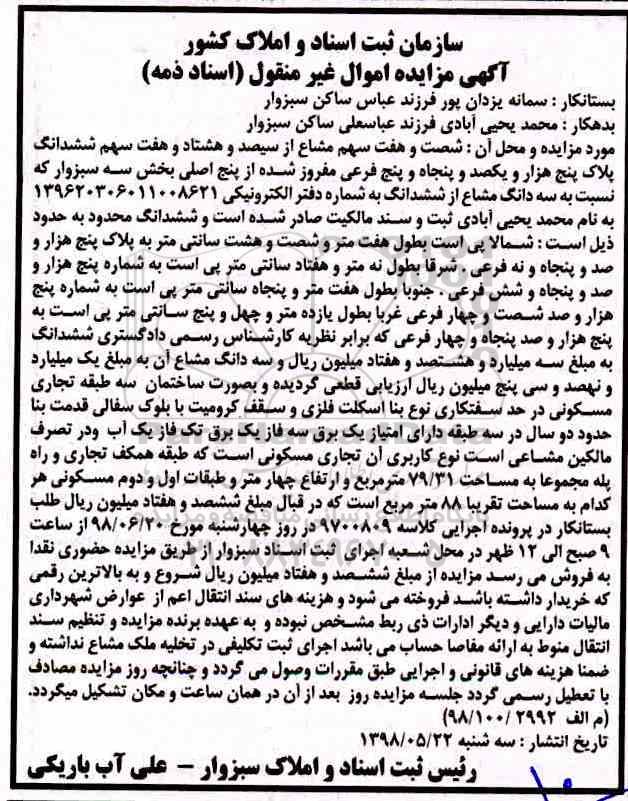 سازمان ثبت اسناد و املاک کشور
آگهی مزایده اموال غیر منقول (اسناد ذمه)
بستانکار : سمانه یزدان پور فرزند عباس ساکن سبزوار
بدهکار : محمد یحیی آبادی فرزند عباسعلی ساکن سبزوار
مورد مزایده و محل آن : شصت و هفت سهم مشاع از سیصد و هشتاد و هفت سهم ششدانگ
پلاک پنج هزار و یکصد و پنجاه و پنج فرعی مفروز شده از پنج اصلی بخش سه سبزوار که
نسبت به سه دانگ مشاع از ششدانگ به شماره دفتر الکترونیکی ۱۳۹۶۲۰۳۰۶۰۱۱۰۰۸۶۲۱
به نام محمد یحیی آبادی ثبت و سند مالکیت صادر شده است و ششدانگ محدود به حدود
ذیل است : شمالا پی است بطول هفت متر و شصت و هشت سانتی متر به پلاک پنج هزار و
صد و پنجاه و نه فرعی . شرقا بطول نه متر و هفتاد سانتی متر پی است به شماره پنج هزار و
صد و پنجاه و شش فرعی . جنوبا بطول هفت متر و پنجاه سانتی متر پی است به شماره پنج
هزار و صد شصت و چهار فرعی غربا بطول یازده متر و چهل و پنج سانتی متر پی است به
پنج هزار و صد پنجاه و چهار فرعی که برابر نظریه کارشناس رسمی دادگستری ششدانگ
به مبلغ سه میلیارد و هشتصد و هفتاد میلیون ریال و سه دانگ مشاع آن به مبلغ یک میلیارد
و نهصد و سی پنج میلیون ریال ارزیابی قطعی گردیده و بصورت ساختمان سه طبقه تجاری
مسکونی در حد سفتکاری نوع بنا اسکلت فلزی و سقف کرومیت با بلوک سفالی قدمت بنا
حدود دو سال در سه طبقه دارای امتیاز یک برق سه فاز یک برق تک فاز یک آب ودر تصرف
مالکین مشاعی است نوع کاربری آن تجاری مسکونی است که طبقه همکف تجاری و راه
پله مجموعا به مساحت ۷۹/۳۱ مترمربع و ارتفاع چهار متر و طبقات اول و دوم مسکونی هر
کدام به مساحت تقریبا ۸۸ متر مربع است که در قبال مبلغ ششصد و هفتاد میلیون ریال طلب
بستانکار در پرونده اجرایی کلاسه ۹۷۰۰۸۰۹ در روز چهارشنبه مورخ ۹۸/۰۶/۲۰ از ساعت
۹ صبح الی ۱۲ ظهر در محل شعبه اجرای ثبت اسناد سبزوار از طریق مزایده حضوری نقدا
به فروش می رسد مزایده از مبلغ ششصد و هفتاد میلیون ریال شروع و به بالاترین رقمی
که خریدار داشته باشد فروخته می شود و هزینه های سند انتقال اعم از عوارض شهرداری
مالیات دارایی و دیگر ادارات ذی ربط مشخص نبوده و به عهده برنده مزایده و تنظیم سند
انتقال منوط به ارائه مفاصا حساب می باشد اجرای ثبت تکلیفی در تخلیه ملک مشاع نداشته و
ضمنا هزینه های قانونی و اجرایی طبق مقررات وصول می گردد و چنانچه روز مزایده مصادف
با تعطیل رسمی گردد جلسه مزایده روز بعد از آن در همان ساعت و مکان تشکیل میگردد.
(م الف ۲۹۹۲ /۹۸/۱۰۰)
تاریخ انتشار : سه شنبه ۱۳۹۸/۰۵/۲۲
رئیس ثبت اسناد و املاک سبزوار – علی آب باریکی